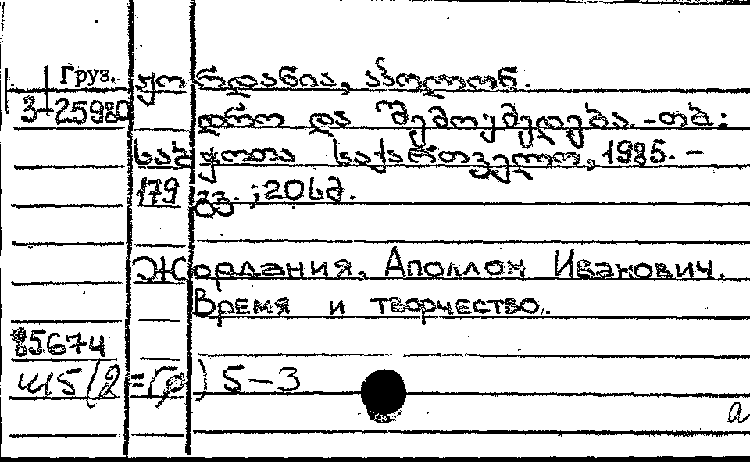 Груз. ჟორდანია, აპოლონ.
3-25980 დრო და შემოქმედება. -თბ.:
საბჭოთა საქართველო, 1985. -
179 გვ. ; 20 სმ.
Жордания, Аполлон Иванович.
Время и творчество.
85674
Ш5(2=Гр) 5-3
а